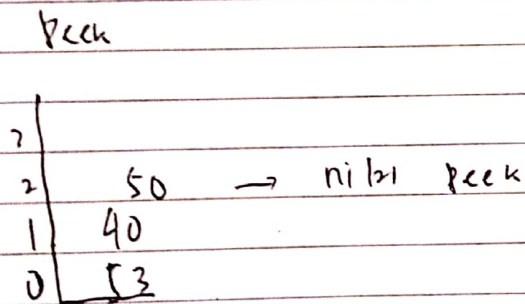 Peek
3
2 50 → nilai peek
1 40
0 53